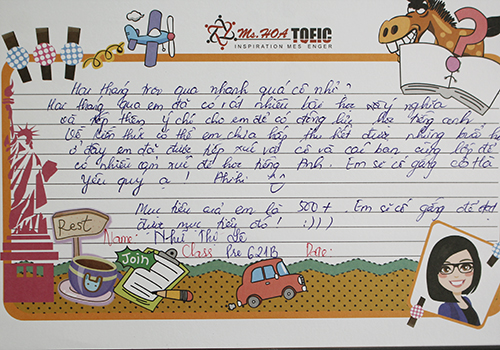 Ms.HOA TOEIC
INSPIRATION MES ENGER
Hai tháng trôi qua nhanh quá cô nhỉ?
Hai tháng qua em đã có rất nhiều bài học ý nghĩa
và thêm ý chí cho em để có động lực học tiếng anh
Về kiến thức có thể em chưa hấp thu hết được nhưng
ở đây em đã được tiếp xúc với cô và các bạn cùng lớp để
có nhiều cảm xúc để học tiếng Anh. Em sẽ cố gắng cô Hoa
yêu quý ạ! Hihi
Mục tiêu của em là 500+. Em sẽ cố gắng để đạt
được mục tiêu đó! :)))
Rest
Name: Như Thị Lê
Join
Class: Pre 621B Date: